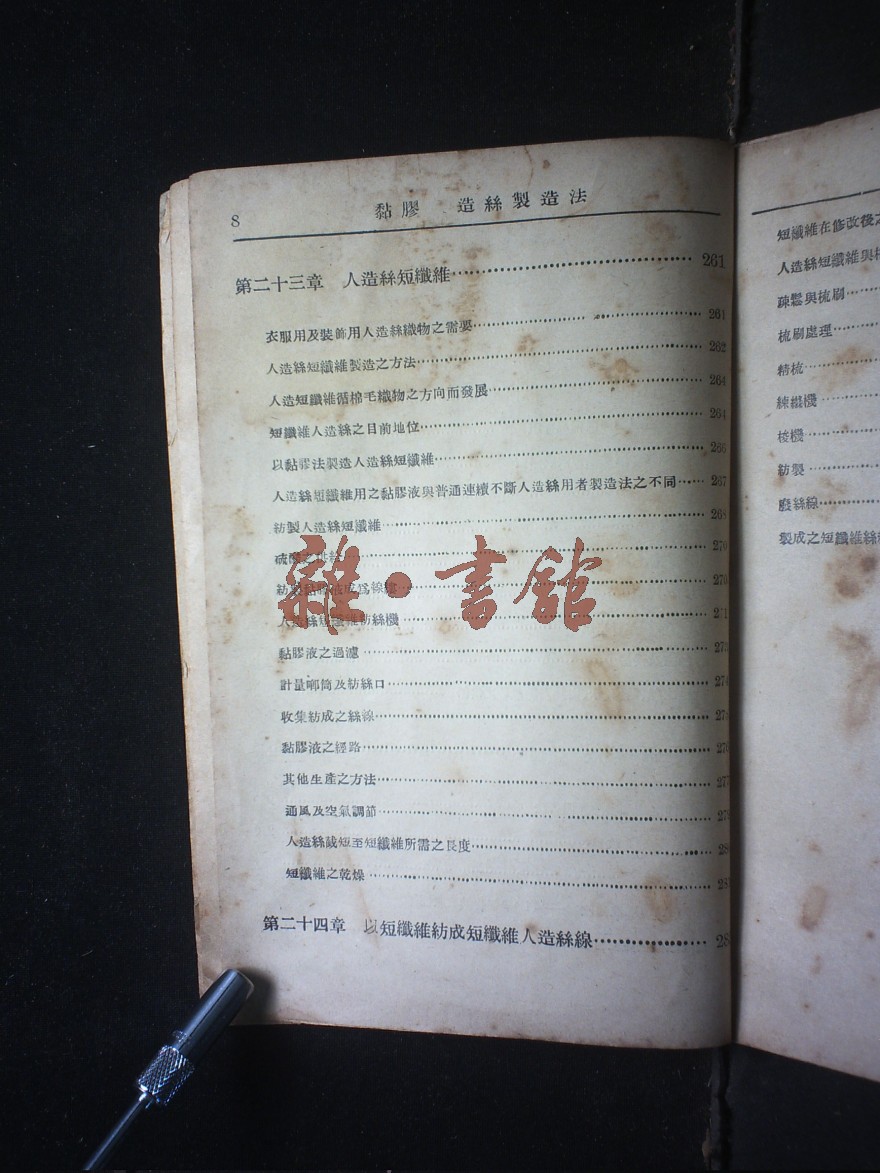 8
黏膠 造絲製造法
第二十三章 人造絲短纖維……261
衣服用及裝飾用人造絲織物之需要……261
人造絲短纖維製造之方法……262
人造短纖維循棉毛織物之方向而發展……264
短纖維人造絲之目前地位……264
以黏膠法製造人造絲短纖維……266
人造絲短纖維用之黏膠液與普通連續不斷人造絲用者製造法之不同……267
紡製人造絲短纖維……268
硫酸之……270
紡……270
人造絲短纖維紡絲機……271
黏膠液之過濾……273
計量唧筒及紡絲口……274
收集紡成之絲線……27
黏膠液之經路……276
其他生產之方法……277
通風及空氣調節……27
人造絲截短至短纖維所需之長度……28
短纖維之乾燥……28
第二十四章 以短纖維紡成短纖維人造絲線……28
雜·書館
短纖維在修改後之
人造絲短纖維與
疎鬆與梳刷……
梳刷處理……
精梳……
練機……
棱機……
紡製……
廢絲線……
製成之短纖維絲